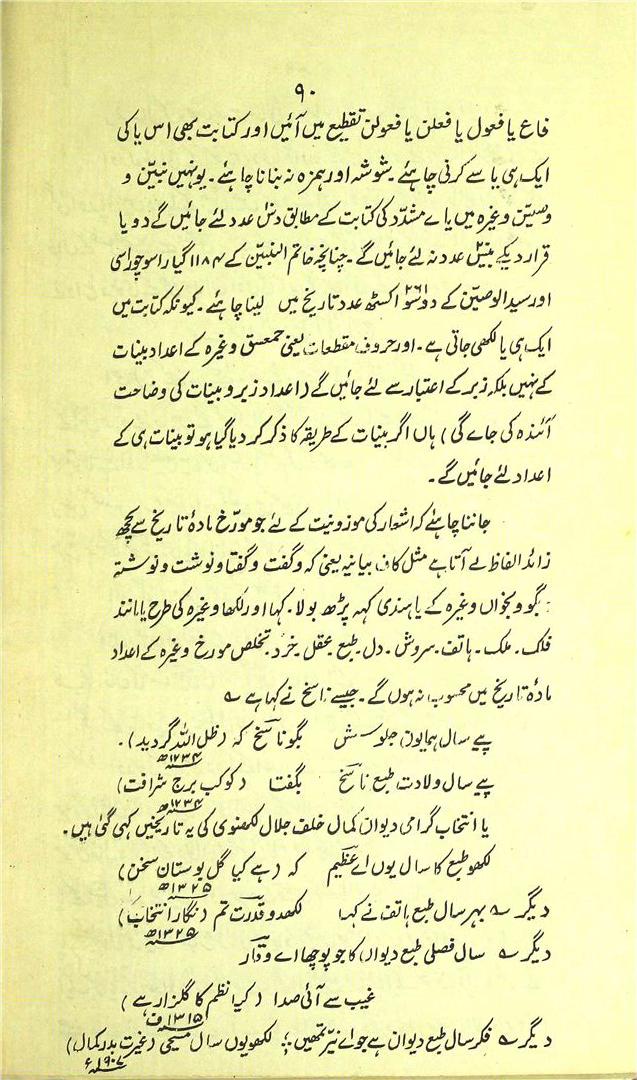 ۹۰
فاع یا فعول یا فعلن یا فعولن تقطیع میں آئیں اور کتابت بھی اس یا کی
ایک ہی یا سے کرنی چاہئے ۔ شوشہ اور ہمزہ نہ بنانا چاہئے ۔ یونہیں نبیّن و
وصیّن وغیرہ میں یاے مشدّد کی کتابت کے مطابق دس عدد لئے جائیں گے دو یا
قرار دیکے بیس عدد نہ لئے جائیں گے ۔ چنانچہ خاتم النبیّن کے ۱۱۸۴ گیارا سو چوراسی
اور سید الوصیّن کے دو سو اکسٹھ ۲۶۱ عدد تاریخ میں لینا چاہئے ۔ کیونکہ کتابت میں
ایک ہی یا لکھی جاتی ہے ۔ اور حروف مقطعات یعنی حمعسق وغیرہ کے اعداد بینات
کے نہیں بلکہ زبر کے اعتبار سے لئے جائیں گے (اعداد زبر و بینات کی وضاحت
آئندہ کی جاے گی) ہاں اگر بینات کے طریقہ کا ذکر کر دیا گیا ہو تو بینات ہی کے
اعداد لئے جائیں گے ۔
جاننا چاہئے کہ اشعار کی موزونیت کے لئے جو مورّخ مادۂ تاریخ سے کچھ
زائد الفاظ لے آتا ہے مثل کاف بیانیہ یعنی کہ و گفت و گفتا و نوشت و نوشتہ
بگو و بخواں وغیرہ کے یا ہندی کہہ پڑھ بولا ۔ کہا اور لکھا وغیرہ کی طرح یا مانند
فلک ۔ ملک ۔ ہاتف ۔ سروش ۔ دل ۔ طبع ۔ عقل ۔ خرد ۔ تخلص مورخ وغیرہ کے اعداد
مادۂ تاریخ میں محسوب نہ ہوں گے ۔ جیسے ناسخ نے کہا ہے ؎
پے سال ہمایون جلوسش بگو ناسخ کہ (ظل اللہ گردید) ۔
۱۲۳۴ھ
پے سال ولادت طبع ناسخ بگفتا (کوکب برج شرافت)
۱۲۳۴ھ
یا انتخاب گرامی دیوان کمال خلف جلال لکھنوی کی یہ تاریخیں کہی گئی ہیں ۔
لکھو طبع کا سال یوں اے عظیم کہ (ہے کیا گل بوستان سخن)
۱۳۲۵ھ
دیگر ؎ بہر سال طبع ہاتف نے کہا لکھدو قدرت تم (نگار انتخاب)
۱۳۲۵ھ
دیگر ؎ سال فصلی طبع دیواں کا جو پوچھا اے وقار
غیب سے آئی صدا (کیا نظم کا گلزار ہے)
۱۳۱۵ف
دیگر ؎ فکر سال طبع دیوان ہے جو اے نیّر تمھیں ؛ لکھو یوں سال مسیحی (غیرت بدر کمال)
۱۹۰۷ء